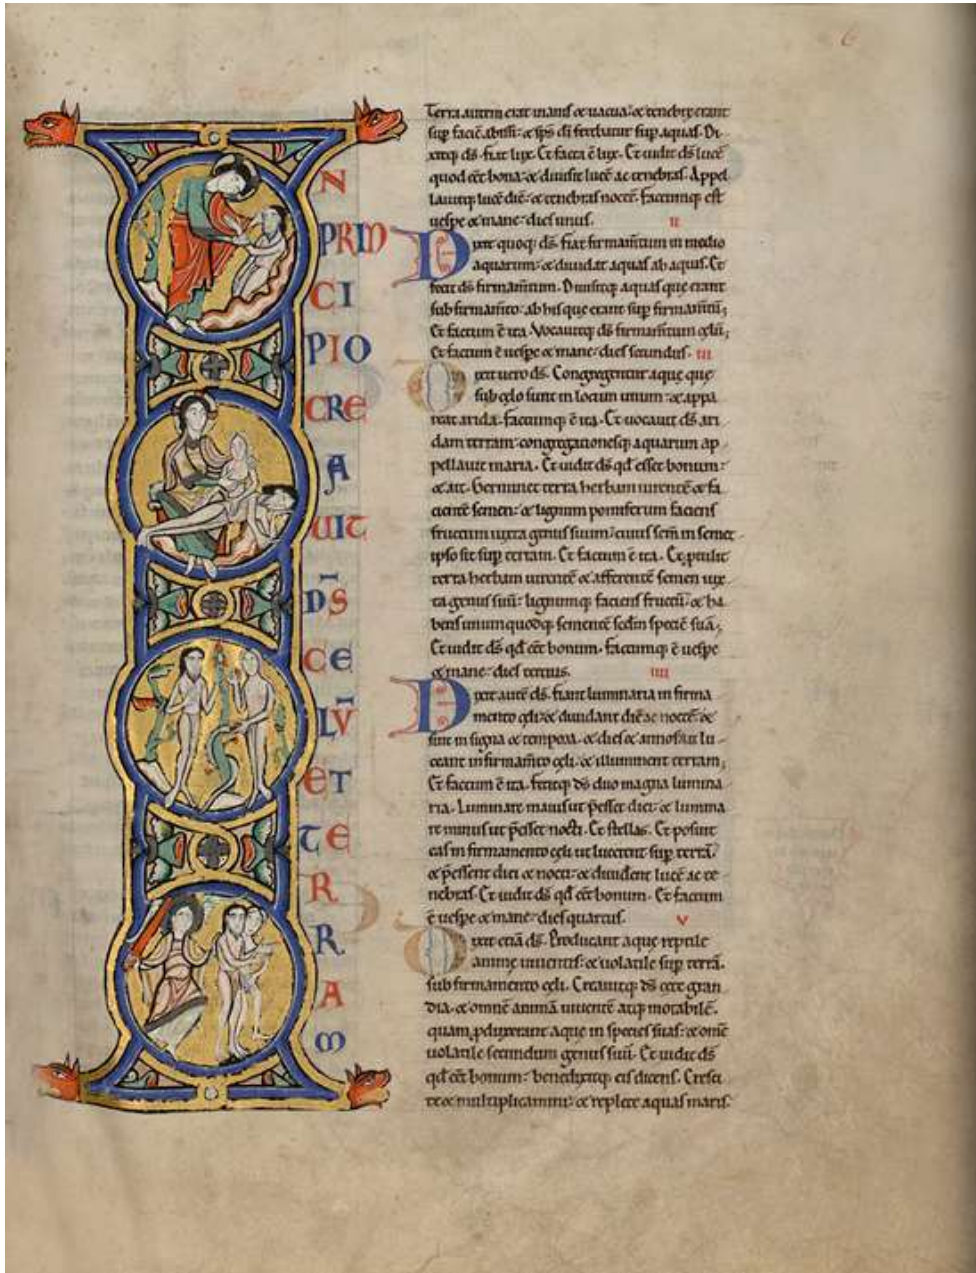 6
I
N
PRIN
CI
PIO
CRE
A
UIT
D̄S
CE
LV̄
ET
TE
R
R
A
M
Terra autem erat inanis & uacua: & tenebre erant
sup faciē abissi: & sp̄s dī ferebatur sup aquas. Di-
xitq; ds̄. fiat lux. Et facta ē lux. Et uidit ds̄ lucē
quod eēt bona: & diuisit lucē ac tenebras. Appel
lauitq; lucē diē: & tenebras noctē. factumq; est
uespe & mane: dies unus. ii
Dixit quoq; ds̄. fiat firmam̄tum in medio
aquarum: & diuidat aquas ab aquis. Et
fecit ds̄ firmam̄tum. Diuisitq; aquas que erant
sub firmam̄to: ab his que erant sup firmam̄tū;
Et factum ē ita. Vocauitq; ds̄ firmam̄tum cęlū;
Et factum ē uespe & mane: dies secundus. iii
Dixit uero ds̄. Congregentur aque que
sub cęlo sunt in locum unum: & appa
reat arida. factumq; ē ita. Et uocauit ds̄ ari
dam terram: congregationesq; aquarum ap
pellauit maria. Et uidit ds̄ qd̄ esset bonum:
& ait. Germinet terra herbam uirentē & fa
cientē semen: & lignum pomiferum faciens
fructum iuxta genus suum: cuius sem̄ in semet
ipso sit sup terram. Et factum ē ita. Et ptulit
terra herbam uirentē & afferentē semen iux
ta genus suū: lignumq; faciens fructū: & ha
bens unumquodq; sementē scdm̄ speciē suā;
Et uidit ds̄ qd̄ eēt bonum. factumq; ē uespe
& mane: dies tertius. iiii
Dixit autē ds̄. fiant luminaria in firma
mento cęli: & diuidant diē ac noctē: &
sint in signa & tempora. & dies & annos: ut lu
ceant in firmam̄to cęli. & illuminent terram;
Et factum ē ita. fecitq; ds̄ duo magna lumina
ria. Luminare maius ut p̄esset diei: & lumina
re minus ut p̄esset nocti. Et stellas. Et posuit
eas in firmamento cęli ut lucerent sup terrā.
& p̄essent diei & nocti: & diuiderent lucē ac te
nebras. Et uidit ds̄ qd̄ eēt bonum. Et factum
ē uespe & mane: dies quartus. v
Dixit etiā ds̄. Producant aque reptile
animę uiuentis: & uolatile sup terrā.
sub firmamento cęli. Creauitq; ds̄ cete gran
dia. & omnē animā uiuentē atq; motabilē.
quam pduxerant aque in species suas: & omē
uolatile secundum genus suū. Et uidit ds̄
qd̄ eēt bonum: benedixitq; eis dicens. Cresci
te & multiplicamini: & replete aquas maris.